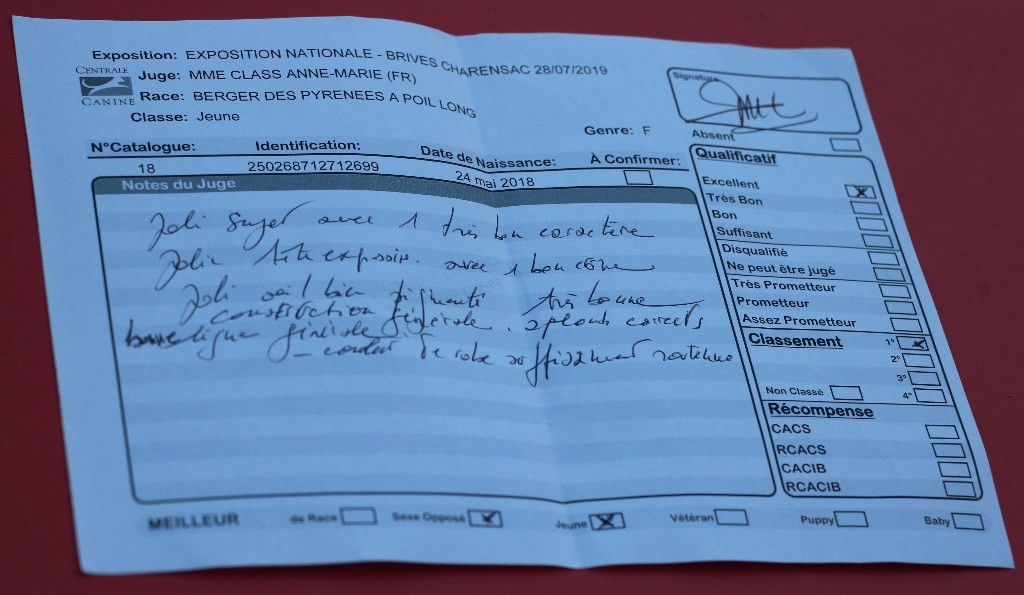 Exposition: EXPOSITION NATIONALE - BRIVES CHARENSAC 28/07/2019
CENTRALE
CANINE
Juge: MME CLASS ANNE-MARIE (FR)
Race: BERGER DES PYRENEES A POIL LONG
Classe: Jeune
Genre: F
Signature
Absent
N°Catalogue: Identification: Date de Naissance: À Confirmer:
18 250268712712699 24 mai 2018
Notes du Juge
Joli sujet avec 1 très bon caractère
Jolie tête expressive. avec 1 bon crâne
Joli oeil bien pigmenté très bonne
construction générale. aplombs corrects
bonne ligne générale
couleur de robe suffisamment soutenue
Qualificatif
Excellent
Très Bon
Bon
Suffisant
Disqualifié
Ne peut être jugé
Très Prometteur
Prometteur
Assez Prometteur
Classement
1°
2°
3°
Non Classé 4°
Récompense
CACS
RCACS
CACIB
RCACIB
MEILLEUR de Race Sexe Opposé Jeune Vétéran Puppy Baby